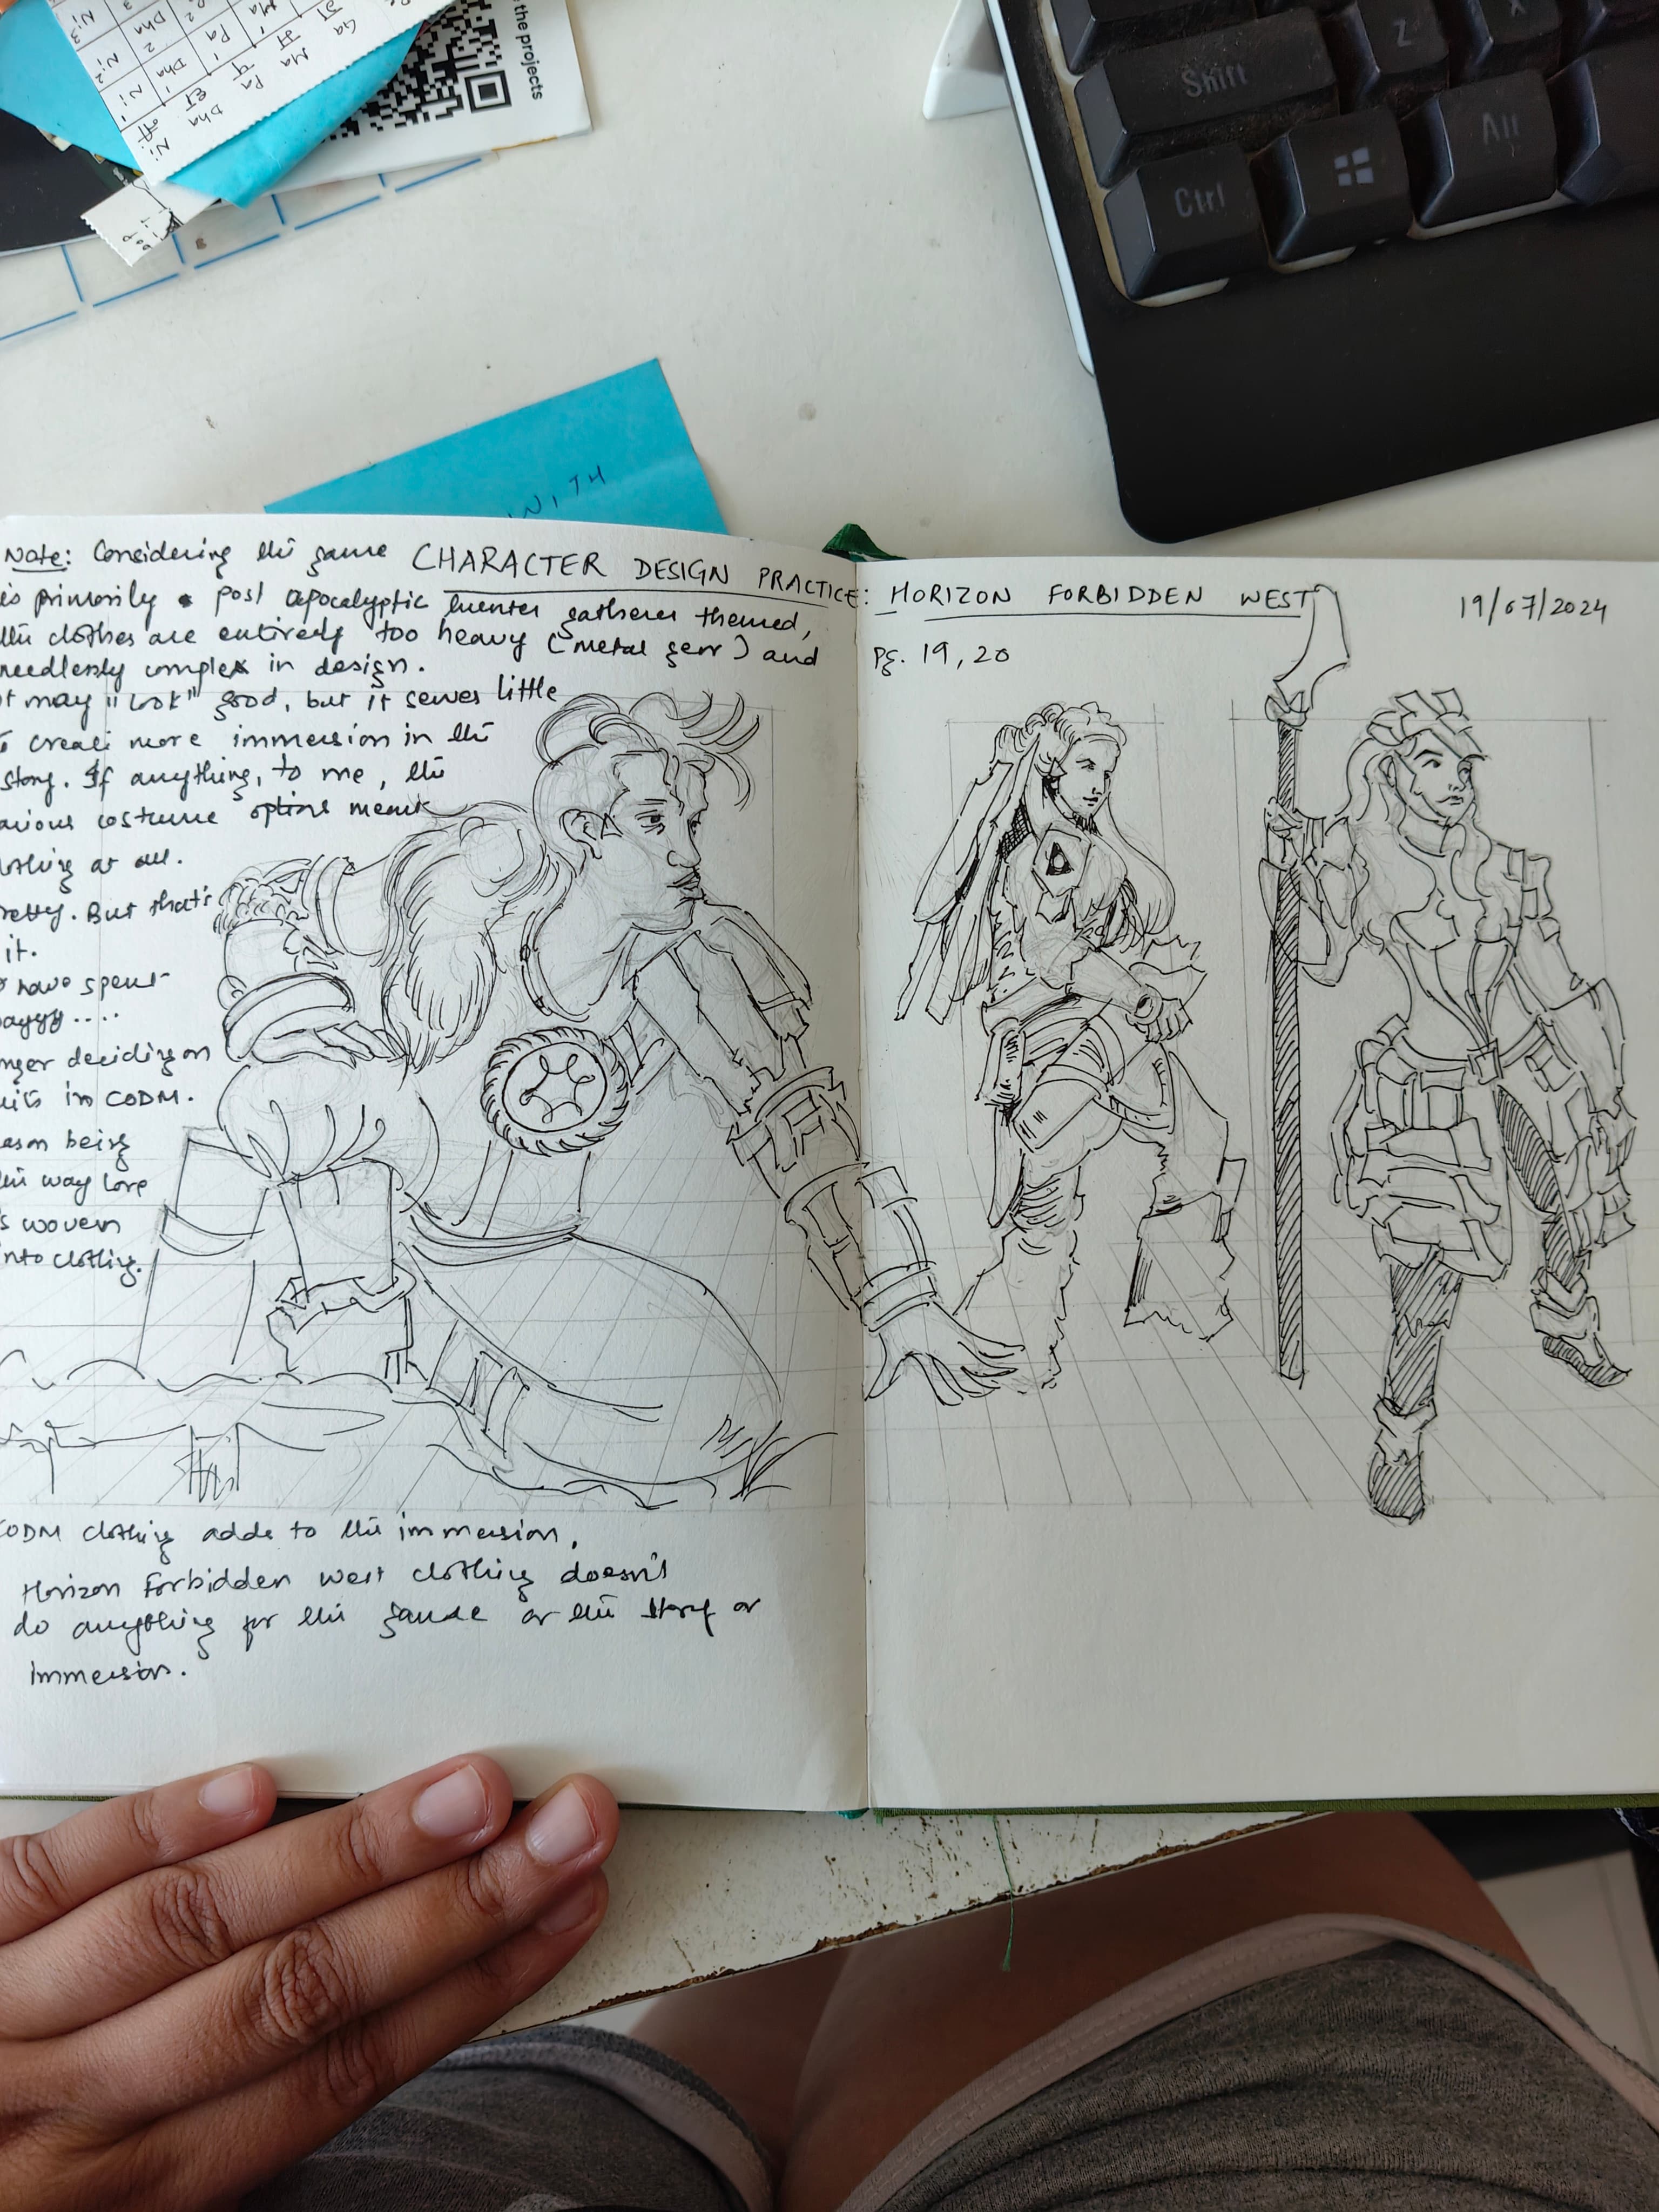 the projects
Shift
Z
X
Ctrl
Alt
WITH
Note: Considering the game
CHARACTER DESIGN PRACTICE: HORIZON FORBIDDEN WEST
19/07/2024
Pg. 19, 20
is primarily a post apocalyptic hunter gatherer themed,
the clothes are entirely too heavy (metal gear) and
needlessly complex in design.
it may "look" good, but it serves little
to create more immersion in the
story. If anything, to me, the
various costume options mean
nothing at all.
Pretty. But that's
it.
have spent
wayyy....
longer deciding on
in CODM.
reason being
the way lore
is woven
into clothing.
CODM clothing adds to the immersion,
Horizon Forbidden West clothing doesn't
do anything for the game or the story or
immersion.